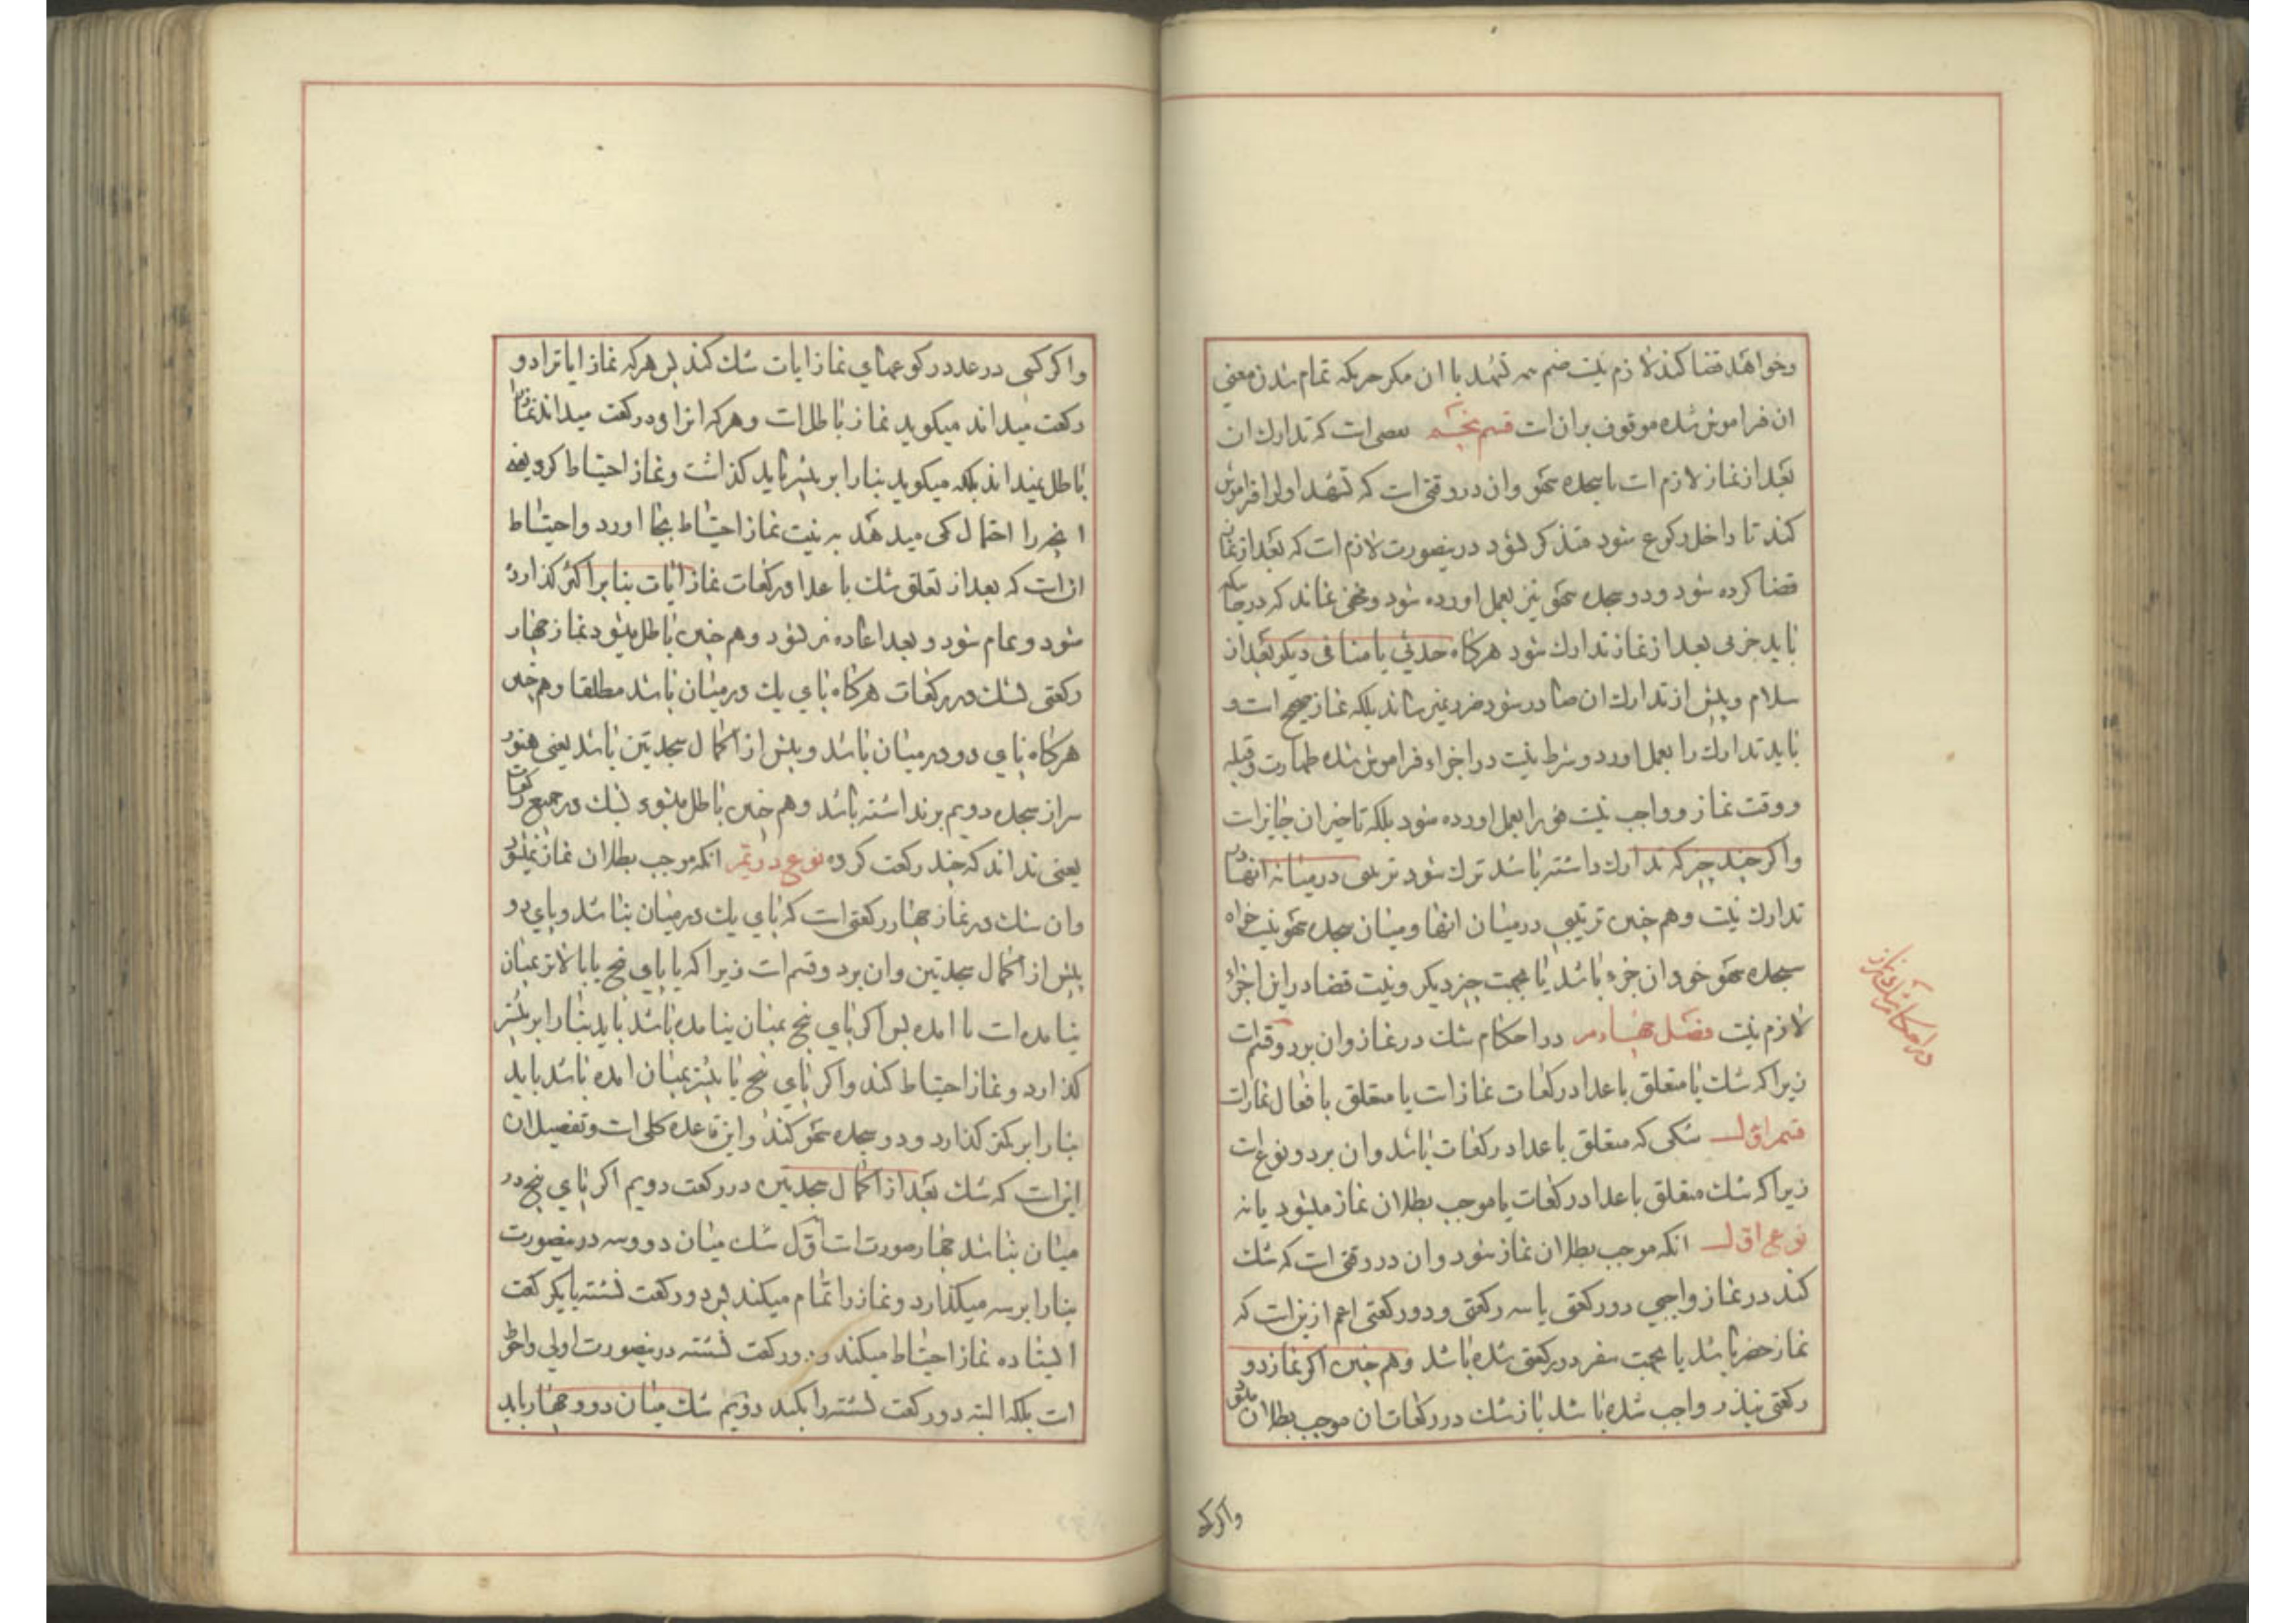 وخواهد قضا کند لازم نیت ضم سه تشهد با ان مکر حریکه تمام شدن معنی
ان فراموش شده موقوف بران ات قسم پنجم نقصی ات که تدارك ان
بعد از نماز لازم ات با سجده سهو وان در وقتی ات که تشهد اول را فراموش
کند تا داخل رکوع شود متذکر نشود درینصورت لازم ات که بعد از نماز
قضا کرده شود ودو سجده سهو نیز بعمل اورده شود ومخفی نماند که در جائیکه
باید جزئی بعد از نماز تدارك شود هرکاه حدثی یا منافی دیکر بعد از
سلام وپیش از تدارك ان صادر شود ضرر نمیرساند بلکه نماز صحیح ات و
باید تدارك را بعمل اورد وشرط نیت در اجزاء فراموش شده طهارت وقبله
ووقت نماز وواجب نیت فورا بعمل اورده شود بلکه تاخیر ان جایز ات
واکر چند چیز که تدارك داشته باشد ترك شود ترتیبی در میانه انها در
تدارك نیت وهم چنین ترتیبی در میان انها ومیان سجده سهو نیت خواه
سجده سهو خود ان جزء باشد یا بجهت چیز دیکر ونیت قضا در این اجزاء
لازم نیت فصل چهارم در احکام شك در نماز وان بر دو قسم ات
زیرا که شك یا متعلق باعداد رکعات نماز ات یا متعلق بافعال نماز ات
قسم اول شکی که متعلق باعداد رکعات باشد وان بر دو نوع ات
زیرا که شك متعلق باعداد رکعات یا موجب بطلان نماز میشود یا نه
نوع اول انکه موجب بطلان نماز شود وان در وقتی ات که شك
کند در نماز واجبی دو رکعتی یا سه رکعتی ودو رکعتی اعم ازین ات که
نماز حضر باشد یا بجهت سفر دو رکعتی شده باشد وهم چنین اکر نماز دو
رکعتی بنذر واجب شده باشد باز شك در رکعات ان موجب بطلان میشود
در احکام شك نماز
واکر کسی
واکر کسی در عدد رکوعهای نماز ایات شك کند پس هرکه نماز ایاترا دو
رکعت میداند میکوید نماز باطل ات وهرکه انرا دو رکعت میداند نماز را
باطل نمیداند بلکه میکوید بنا را بر بیشتر باید کذاشت ونماز احتیاط کرد یعنی
انچه را احتمال کمی میدهد به نیت نماز احتیاط بجا اورد واحتیاط
ان ات که بعد از تعلق شك باعداد رکعات نماز ایات بنا بر اکثر کذارده
شود وتمام شود وبعد اعاده نیز شود وهم چنین باطل میشود نماز چهار
رکعتی بشك در رکعات هرکاه پای یك در میان باشد مطلقا وهم چنین
هرکاه پای دو در میان باشد وپیش از اکمال سجدتین باشد یعنی هنوز
سر از سجده دویم بر نداشته باشد وهم چنین باطل میشود بشك در جمیع رکعات
یعنی نداند که چند رکعت کرده نوع دویم انکه موجب بطلان نماز نمیشود
وان شك در نماز چهار رکعتی ات که پای یك در میان نباشد وپای دو
پیش از اکمال سجدتین وان بر دو قسم ات زیرا که یا پای پنج یا بالاتر بمیان
نیامده ات یا امده پس اکر پای پنج بمیان نیامده باشد باید بنا را بر بیشتر
کذارد ونماز احتیاط کند واکر پای پنج یا بیشتر بمیان امده باشد باید
بنا را بر کمتر کذارد ودو سجده سهو کند واین قاعده کلی ات وتفصیل ان
این ات که شك بعد از اکمال سجدتین در رکعت دویم اکر پای پنج در
میان نباشد چهار صورت ات اول شك میان دو وسه درینصورت
بنا را بر سه میکذارد ونماز را تمام میکند پس دو رکعت نشسته یا یکرکعت
ایستاده نماز احتیاط میکند ودو رکعت نشسته درینصورت اولی واحوط
ات بلکه البته دو رکعت نشسته را بکند دویم شك میان دو وچهار باید